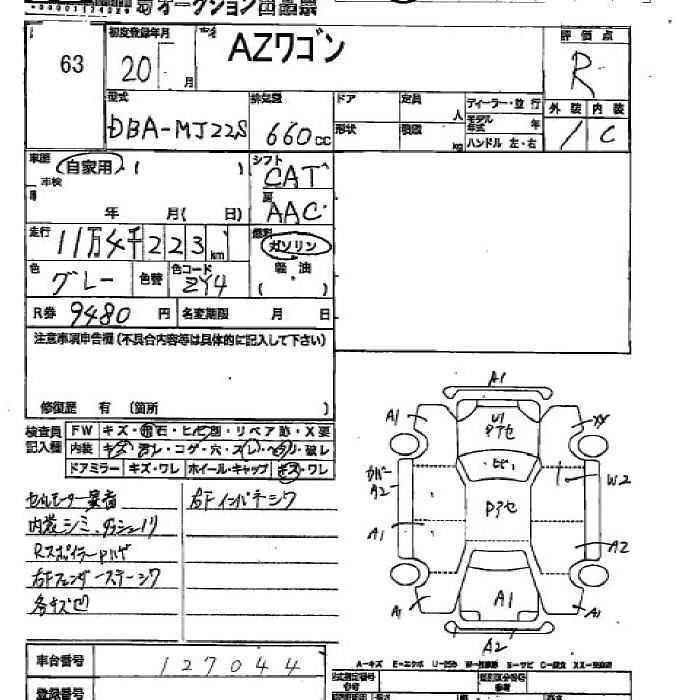 オークション出品票
63
初度登録年月
20 月
車名
AZワゴン
評価点
R
型式
DBA-MJ22S
排気量
660 cc
ドア
定員 人
ディーラー・並行
形状
積載 kg
モデル年式 年
ハンドル 左・右
外装 内装
/ C
車歴 自家用・( )
車検
年 月( 日)
シフト
CAT
AAC
走行
11万4千223 km
燃料
ガソリン
軽油
( )
色
グレー
色替
色コード
ZY4
R券 9480 円
名変期限 月 日
注意事項申告欄(不具合内容等は具体的に記入して下さい)
修復歴 有 〔箇所 〕
検査員記入欄
FW キズ・飛石・ヒビ割・リペア跡・X要
内装 キズ・汚レ・コゲ・穴・スレ・ヘタリ・破レ
ドアミラー キズ・ワレ ホイール・キャップ キズ・ワレ
セルモーター異音
右Fインパネシワ
内装シミ、
各キズ凹
A1
A1
U1
XX
カバー
A2
W2
A1
A2
A1
A1
A1
A2
車台番号
127044
A-キズ E-エクボ
登録番号